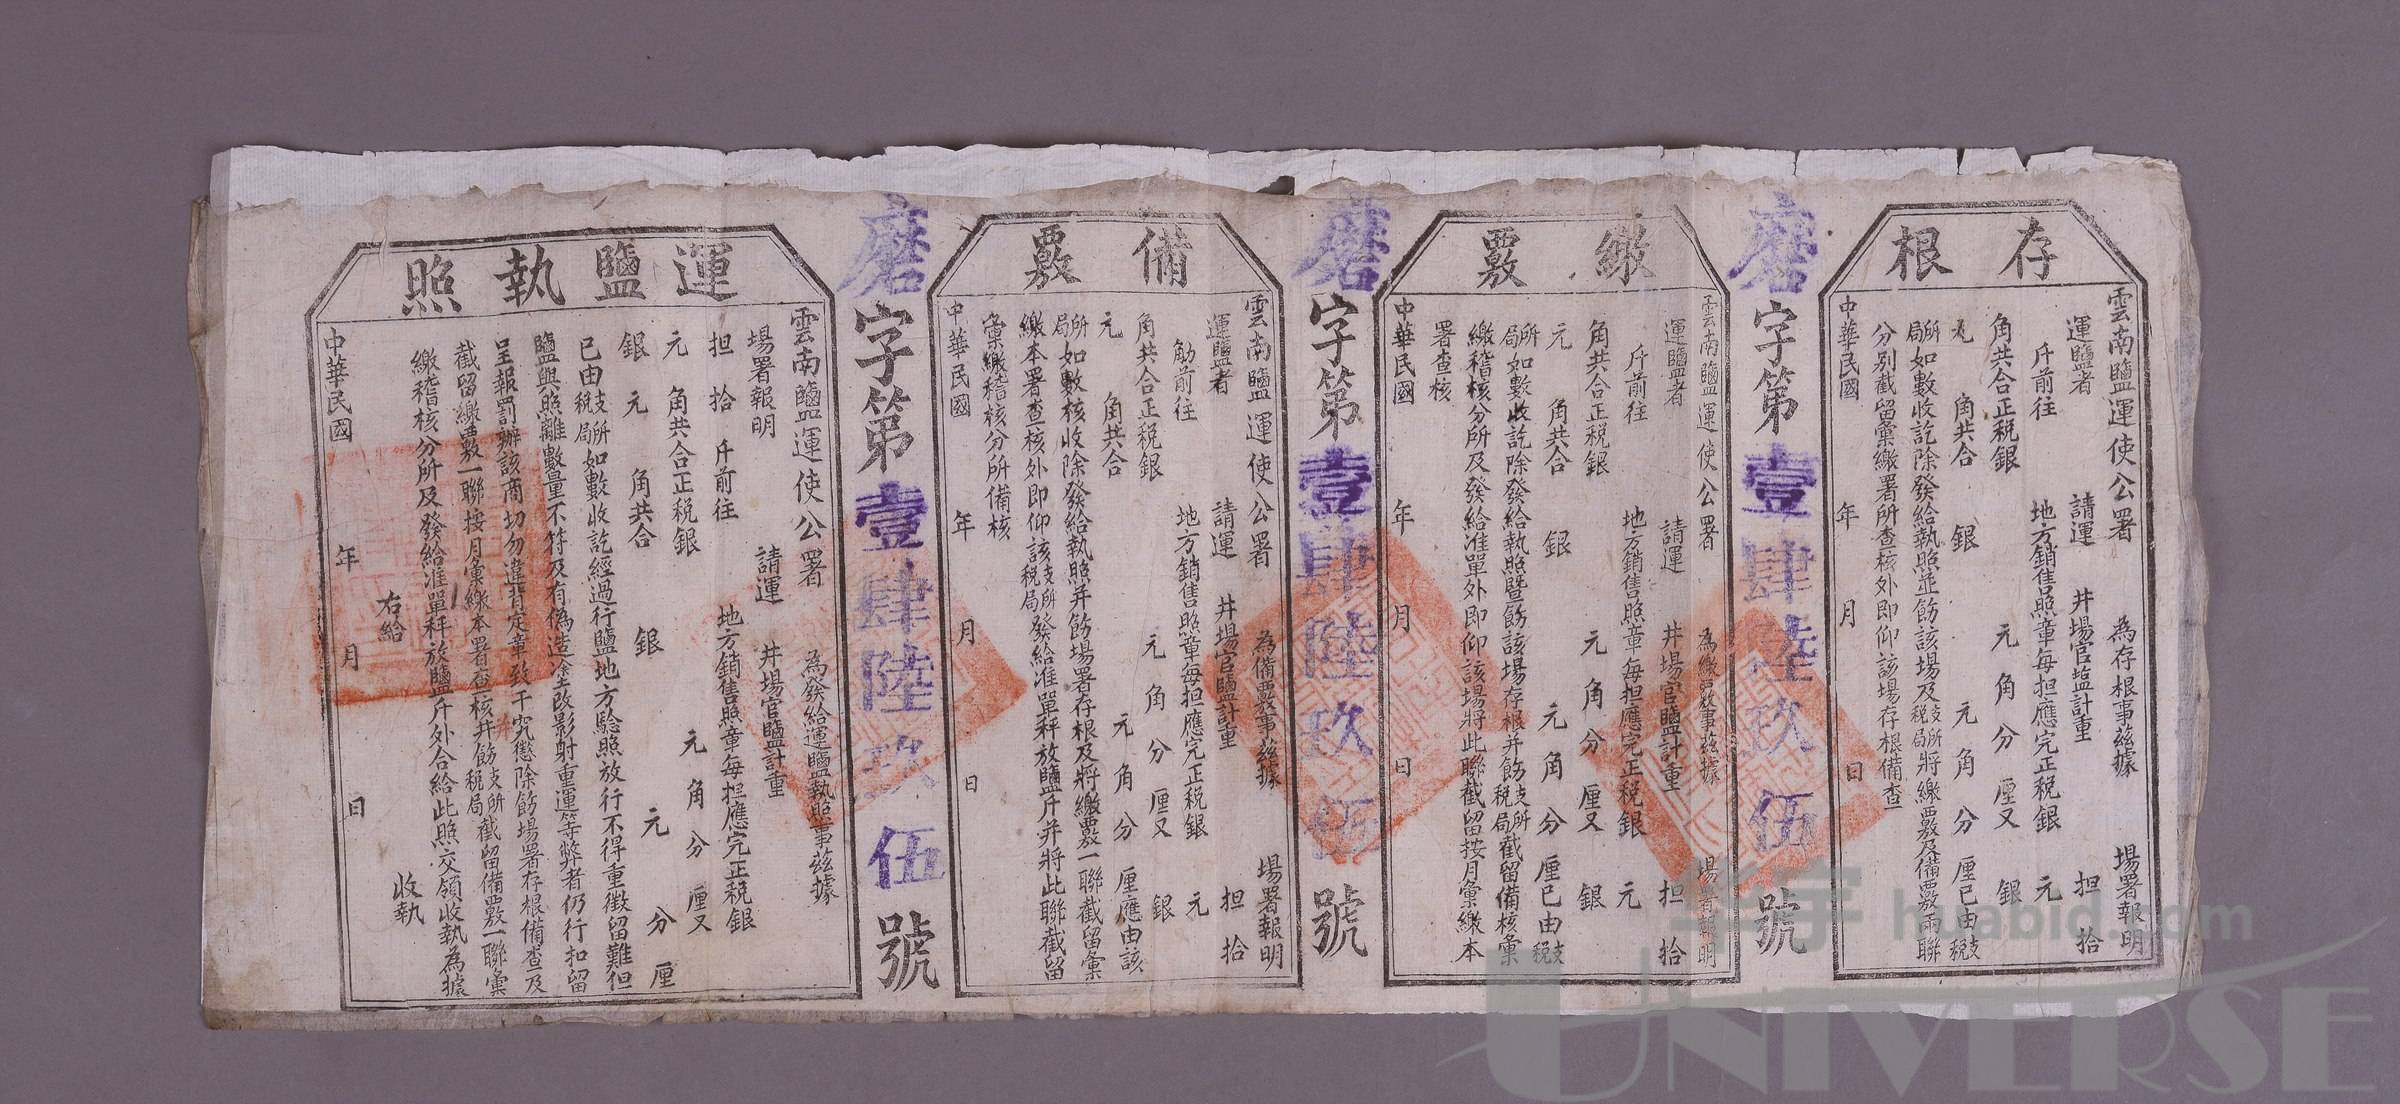 存根
雲南鹽運使公署 為存根事茲據 場署報明
運鹽者 請運 井場官塩計重 担 拾
斤前往 地方銷售照章每担應完正税銀 元
角共合正税銀 元 角 分 厘又 銀
元 角共合 銀 元 角 分 厘已由支所税局
如數收訖除發給執照並飭該場及支所税局將繳覈及備覈兩聯
分別截留彙繳署所查核外即仰該場存根備查
中華民國 年 月 日
磨字第壹肆陸玖伍號
繳覈
雲南鹽運使公署 為繳覈事茲據 場署報明
運鹽者 請運 井場官鹽計重 担 拾
斤前往 地方銷售照章每担應完正税銀 元
角共合正税銀 元 角 分 厘又 銀
元 角共合 銀 元 角 分 厘已由支税
所局如數收訖除發給執照暨飭該場存根并飭支所税局截留備核彙
繳稽核分所及發給准單外即仰該場將此聯截留按月彙繳本
署查核
中華民國 年 月 日
磨字第壹肆陸玖伍號
備覈
雲南鹽運使公署 為備覈事茲據 場署報明
運鹽者 請運 井場官鹽計重 担 拾
觔前往 地方銷售照章每担應完正税銀 元
角共合正税銀 元 角 分 厘又 銀
元 角共合 元 角 分 厘應由該
所局如數核收除發給執照并飭場署存根及將繳覈一聯截留彙
繳本署查核外即仰該支所税局發給准單秤放鹽斤并將此聯截留
彙繳稽核分所備核
中華民國 年 月 日
磨字第壹肆陸玖伍號
運鹽執照
雲南鹽運使公署 為發給運鹽執照事茲據
場署報明 請運 井場官鹽計重
担 拾 斤前往 地方銷售照章每担應完正税銀
元 角共合正税銀 元 角 分 厘又
銀 元 角共合 銀 元 分 厘
已由支所税局如數收訖經過行鹽地方驗照放行不得重徵留難但
鹽與照離數量不符及有偽造塗改影射重運等弊者仍行扣留
呈報罰辦該商切勿違背定章致干究懲除飭場署存根備查及
截留繳覈一聯按月彙繳本署查核并飭支所税局截留備覈一聯彙
繳稽核分所及發給准單秤放鹽斤外合給此照交領收執為據
右給 收執
中華民國 年 月 日
华宇 huabid.com
UNIVERSE